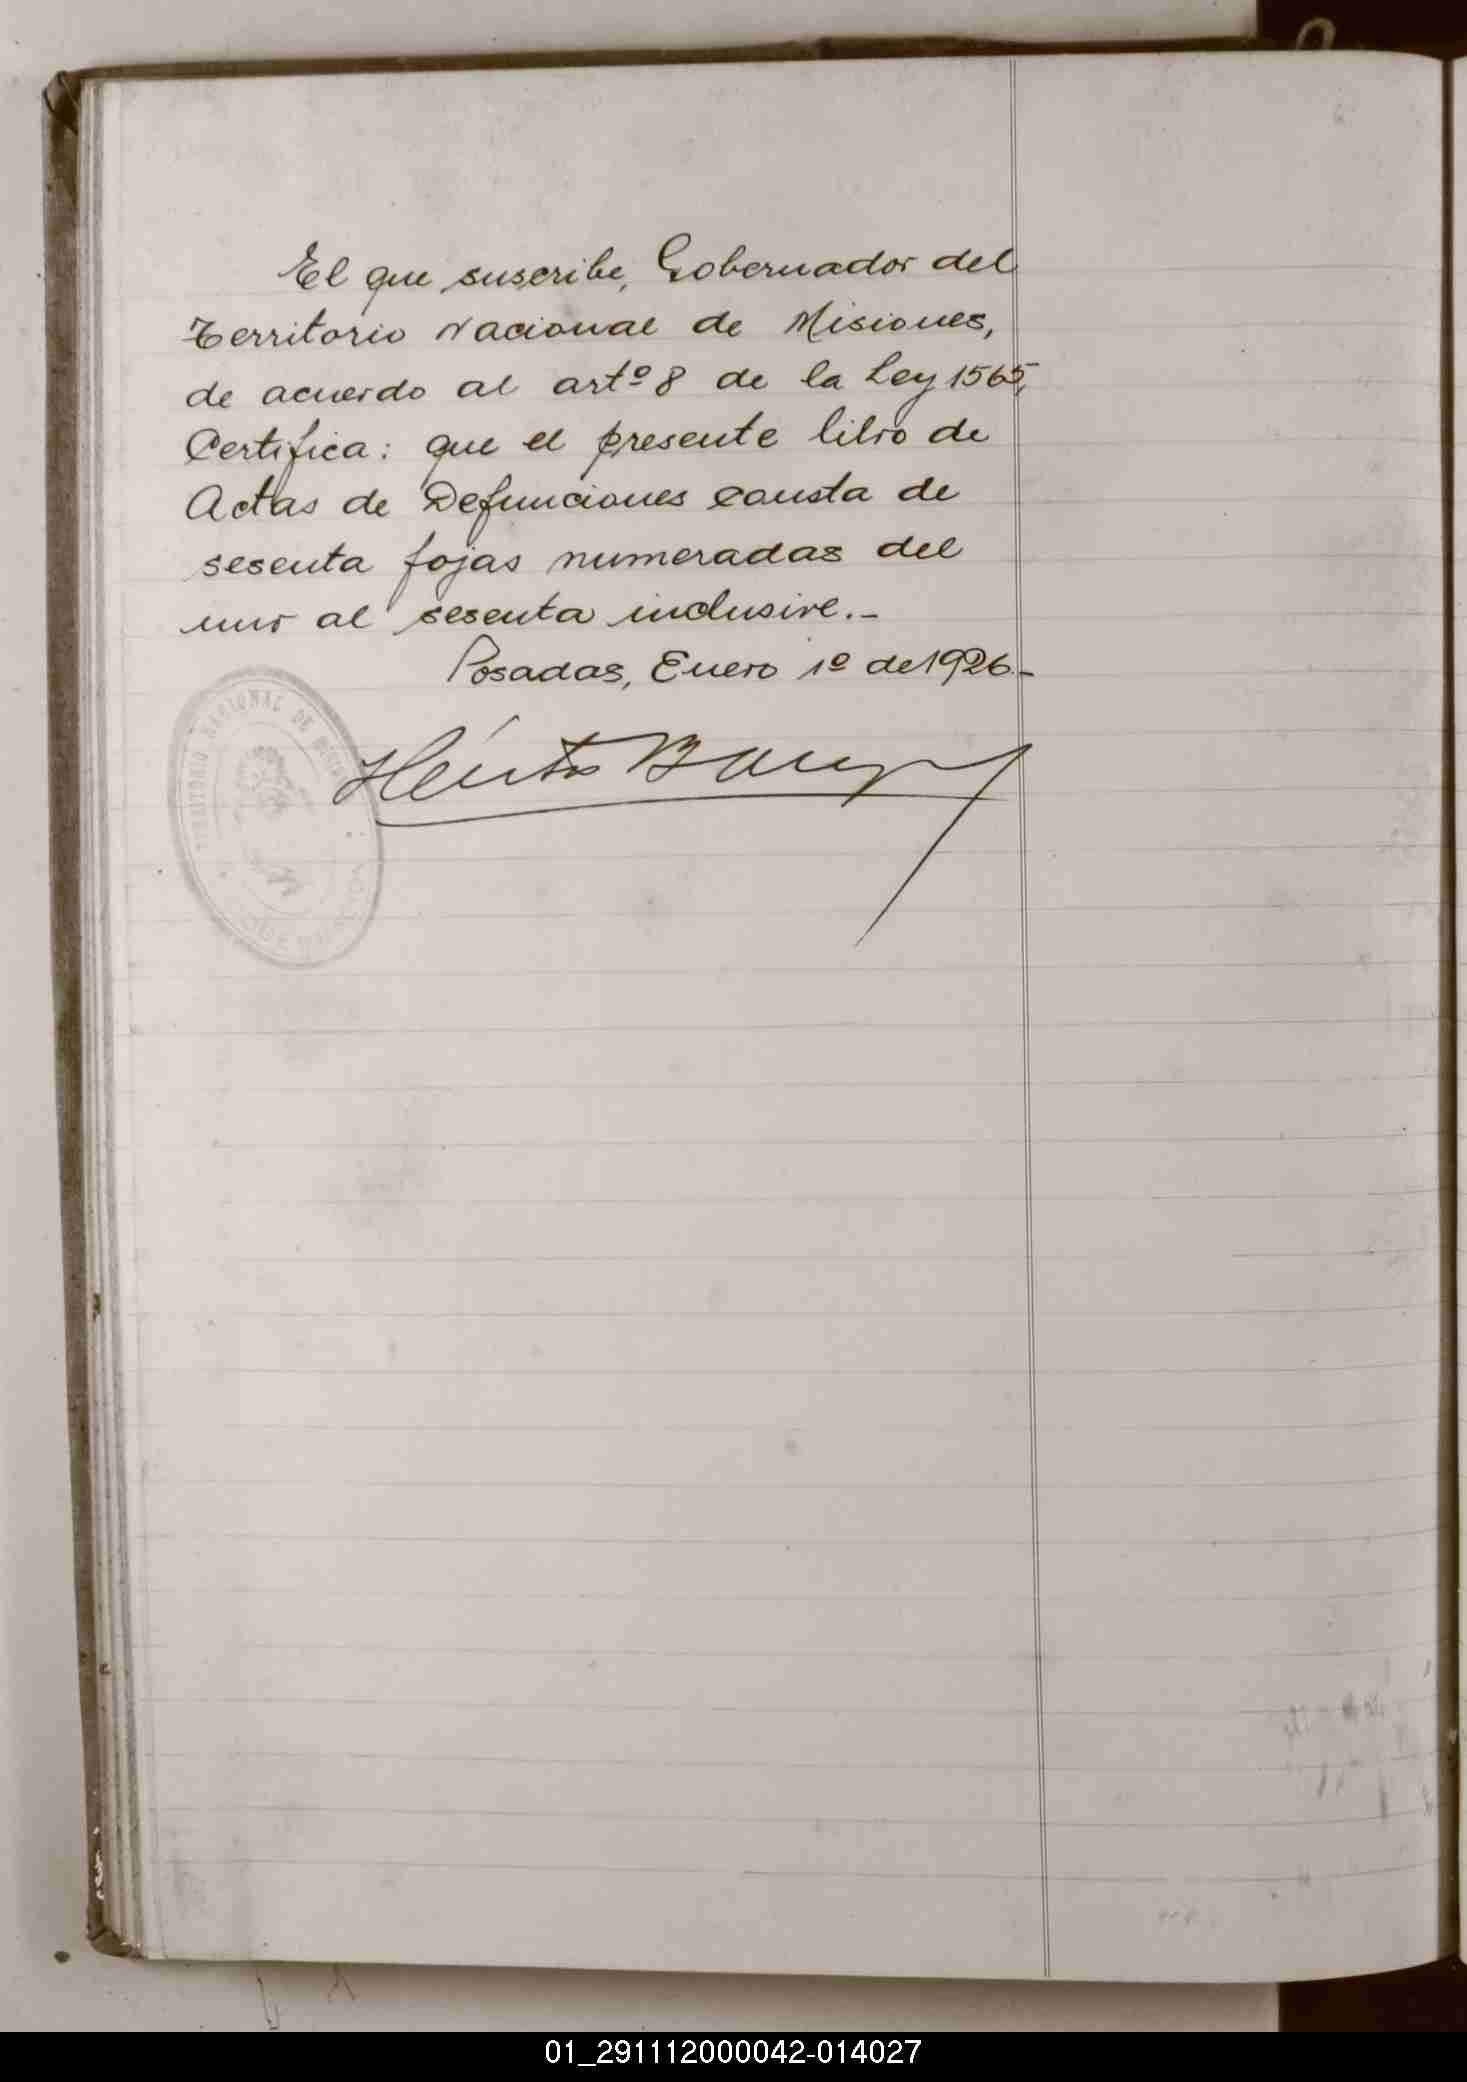 El que suscribe, Gobernador del
Territorio Nacional de Misiones,
de acuerdo al artº 8 de la Ley 1565,
Certifica: que el presente libro de
Actas de Defunciones consta de
sesenta fojas numeradas del
uno al sesenta inclusive.-
Posadas, Enero 1º de 1926.-
TERRITORIO NACIONAL DE MISIONES
GOBERNACION
Héctor
01_291112000042-014027